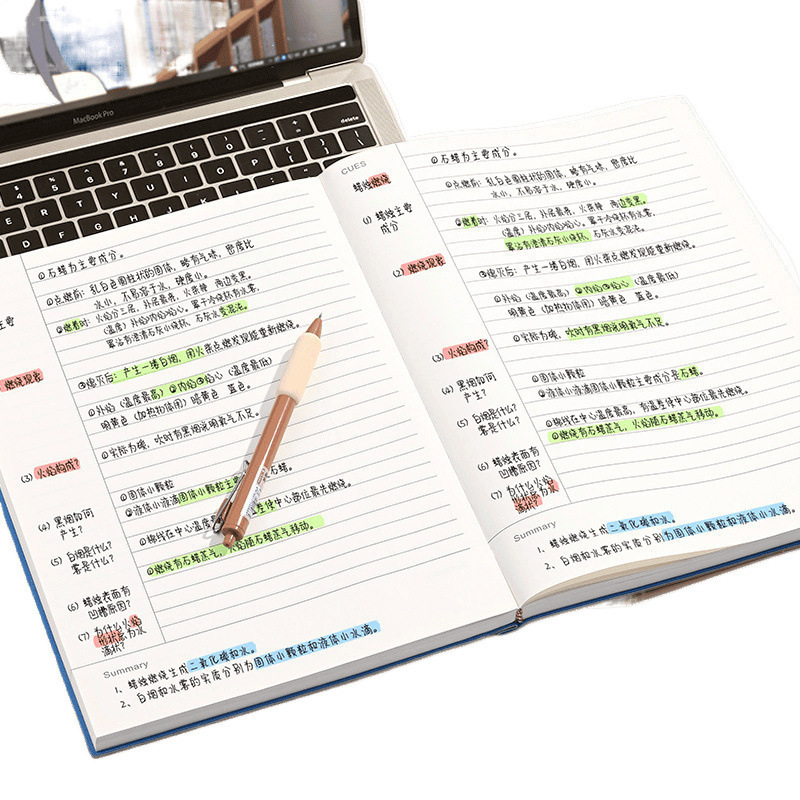 MacBook Pro
delete
① 石蜡为主要成分。
② 点燃前: 乳白色圆柱状的固体, 略有气味, 密度比
水小, 不易溶于水, 硬度小。
③ 燃着时: 火焰分三层, 外层最亮, 火柴梗两边变黑。
(温度) 外焰>内焰>焰心。罩干冷烧杯有水雾,
罩沾有澄清石灰小烧杯, 石灰水变混浊。
③ 熄灭后: 产生一缕白烟, 用火柴点燃发现能重新燃烧。
① 外焰 (温度最高) ② 内焰 ③ 焰心 (温度最低)
明黄色 (加热物体用) 暗黄色 蓝色。
① 实际为碳, 吹时有黑烟说明氧气不足。
① 固体小颗粒
② 液体小液滴固体小颗粒主要 是石蜡。
① 棉线在中心温度 差使中心部位最先燃烧。
① 燃烧有石蜡蒸气, 火焰随石蜡蒸气移动。
燃烧现象
(3) 火焰构成?
(4) 黑烟如何
产生?
(5) 白烟是什么?
雾是什么?
(6) 蜡烛表面有
凹槽原因?
(7) 为什么火焰
形状总为水
滴状?
Summary
1、蜡烛燃烧生成二氧化碳和水。
2、白烟和水雾的实质分别为固体小颗粒和液体小水滴。
CUES
蜡烛燃烧
(1) 蜡烛主要
成分
(2) 燃烧现象
(3) 火焰构成?
(4) 黑烟如何
产生?
(5) 白烟是什么?
雾是什么?
(6) 蜡烛表面有
凹槽原因?
(7) 为什么火焰
① 石蜡为主要成分。
① 点燃前: 乳白色圆柱状的固体, 略有气味, 密度比
水小, 不易溶于水, 硬度小。
② 燃着时: 火焰分三层, 外层最亮, 火柴梗 两边变黑。
(温度) 外焰>内焰>焰心。罩干冷烧杯有水雾,
罩沾有澄清石灰小烧杯, 石灰水变混浊。
③ 熄灭后: 产生一缕白烟, 用火柴点燃发现能重新燃烧。
① 外焰 (温度最高) ② 内焰 ③ 焰心 (温度最低)
明黄色 (加热物体用) 暗黄色 蓝色。
① 实际为碳, 吹时有黑烟说明氧气不足。
① 固体小颗粒
② 液体小液滴固体小颗粒主要成分是石蜡。
① 棉线在中心温度最高, 有温差使中心部位最先燃烧。
① 燃烧有石蜡蒸气, 火焰随石蜡蒸气移动。
Summary
1、蜡烛燃烧生成二氧化碳和水。
2、白烟和水雾的实质分别为固体小颗粒和液体小水滴。